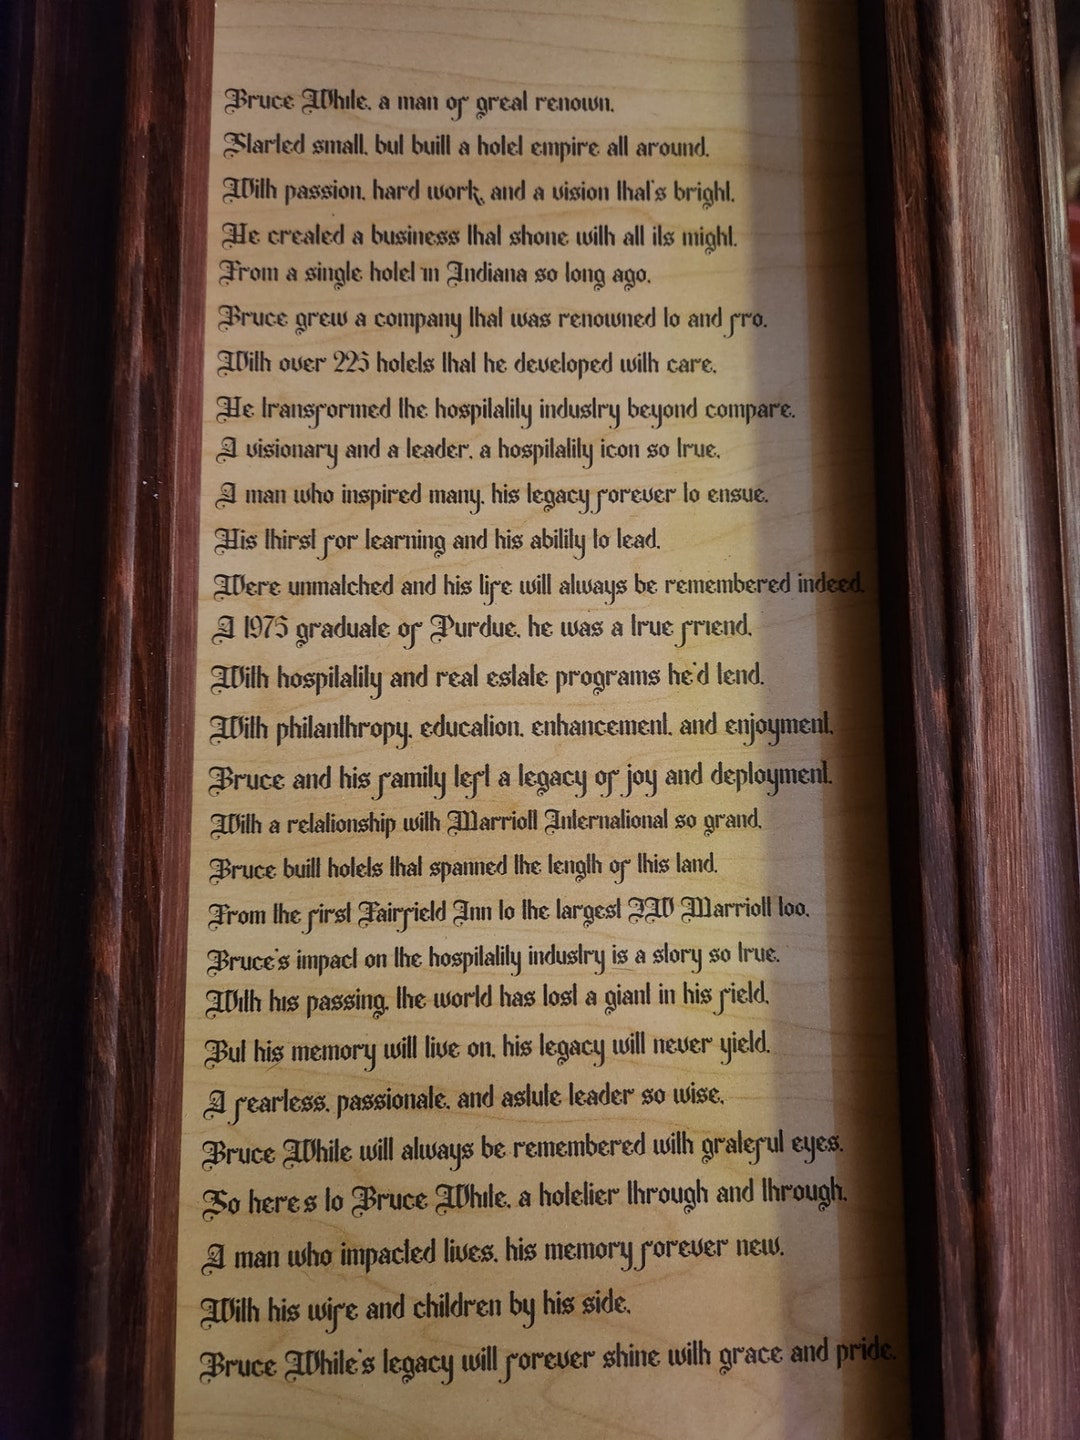 Bruce White, a man of great renown,
Started small, but built a hotel empire all around.
With passion, hard work, and a vision that's bright,
He created a business that shone with all its might.
From a single hotel in Indiana so long ago,
Bruce grew a company that was renowned to and fro.
With over 225 hotels that he developed with care,
He transformed the hospitality industry beyond compare.
A visionary and a leader, a hospitality icon so true,
A man who inspired many, his legacy forever to ensue.
His thirst for learning and his ability to lead,
Were unmatched and his life will always be remembered indeed.
A 1975 graduate of Purdue, he was a true friend,
With hospitality and real estate programs he'd lend.
With philanthropy, education, enhancement, and enjoyment,
Bruce and his family left a legacy of joy and deployment.
With a relationship with Marriott International so grand,
Bruce built hotels that spanned the length of this land.
From the first Fairfield Inn to the largest JW Marriott too,
Bruce's impact on the hospitality industry is a story so true.
With his passing, the world has lost a giant in his field,
But his memory will live on, his legacy will never yield.
A fearless, passionate, and astute leader so wise,
Bruce White will always be remembered with grateful eyes.
So here's to Bruce White, a hotelier through and through,
A man who impacted lives, his memory forever new.
With his wife and children by his side,
Bruce White's legacy will forever shine with grace and pride.